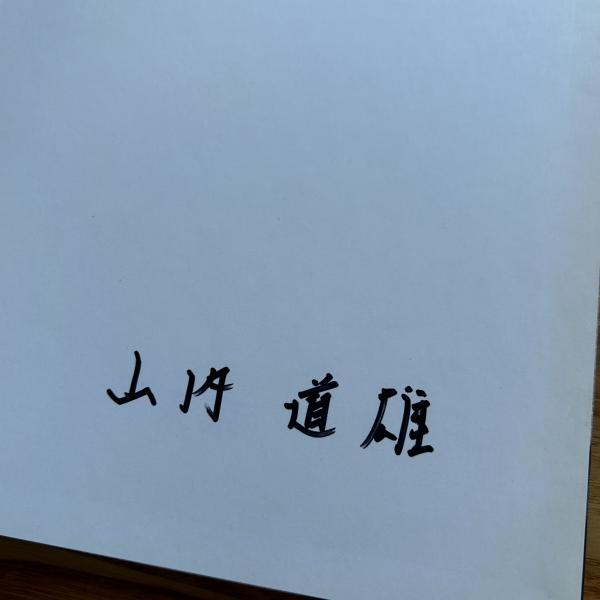 山内 道雄